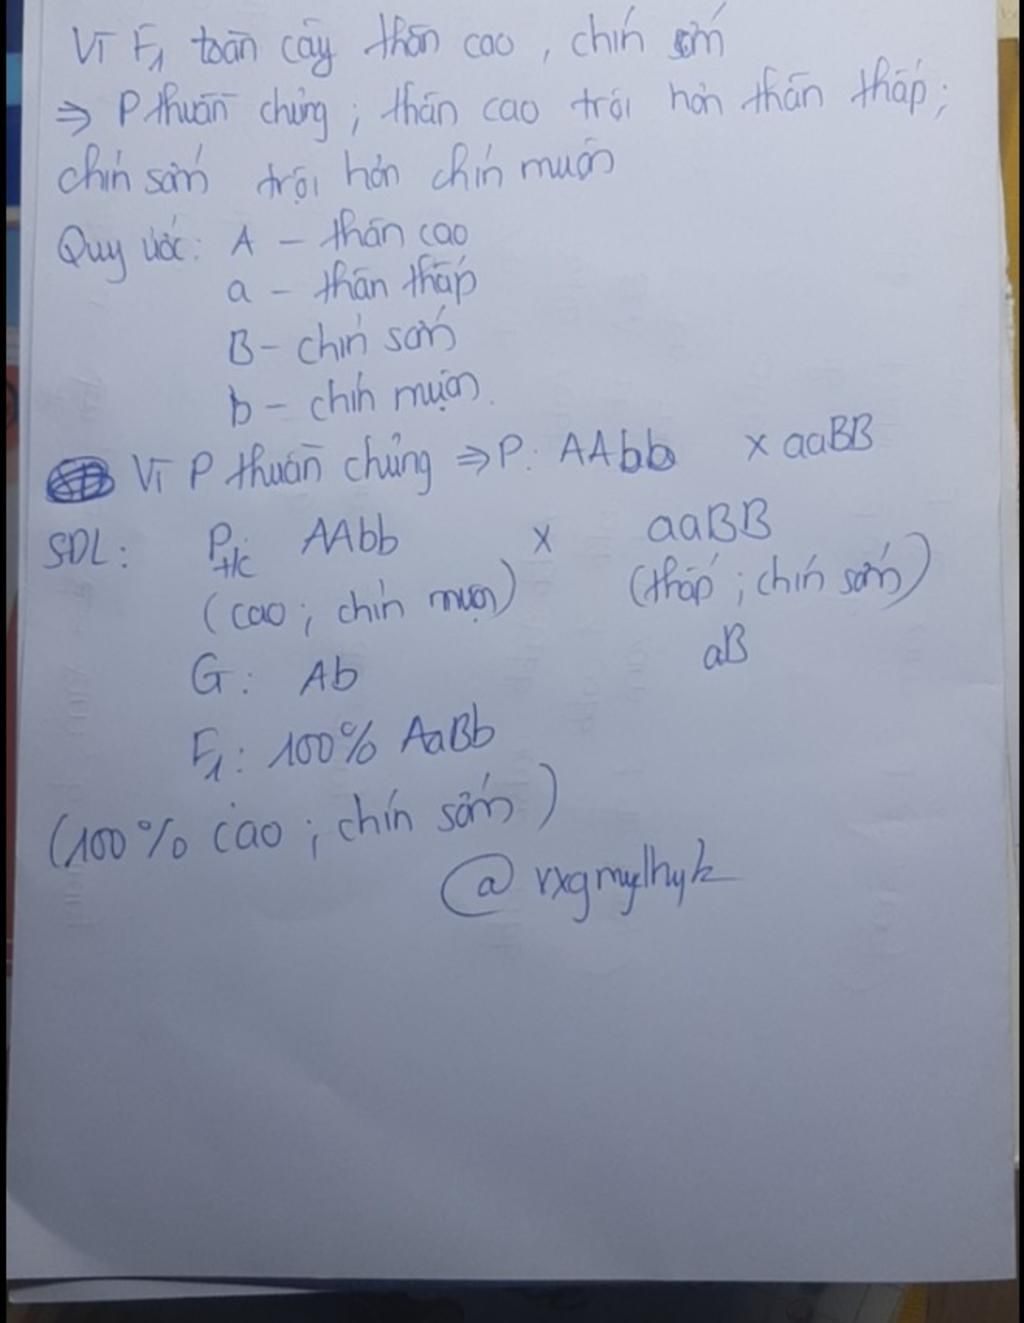 Vì F1 toàn cây thân cao, chín sớm
=> P thuần chủng; thân cao trội hơn thân thấp;
chín sớm trội hơn chín muộn
Quy ước: A – thân cao
a – thân thấp
B – chín sớm
b – chín muộn.
Vì P thuần chủng => P: AAbb x aaBB
SDL: Pt/c AAbb x aaBB
(cao; chín muộn) (thấp; chín sớm)
G: Ab aB
F1: 100% AaBb
(100% cao; chín sớm)